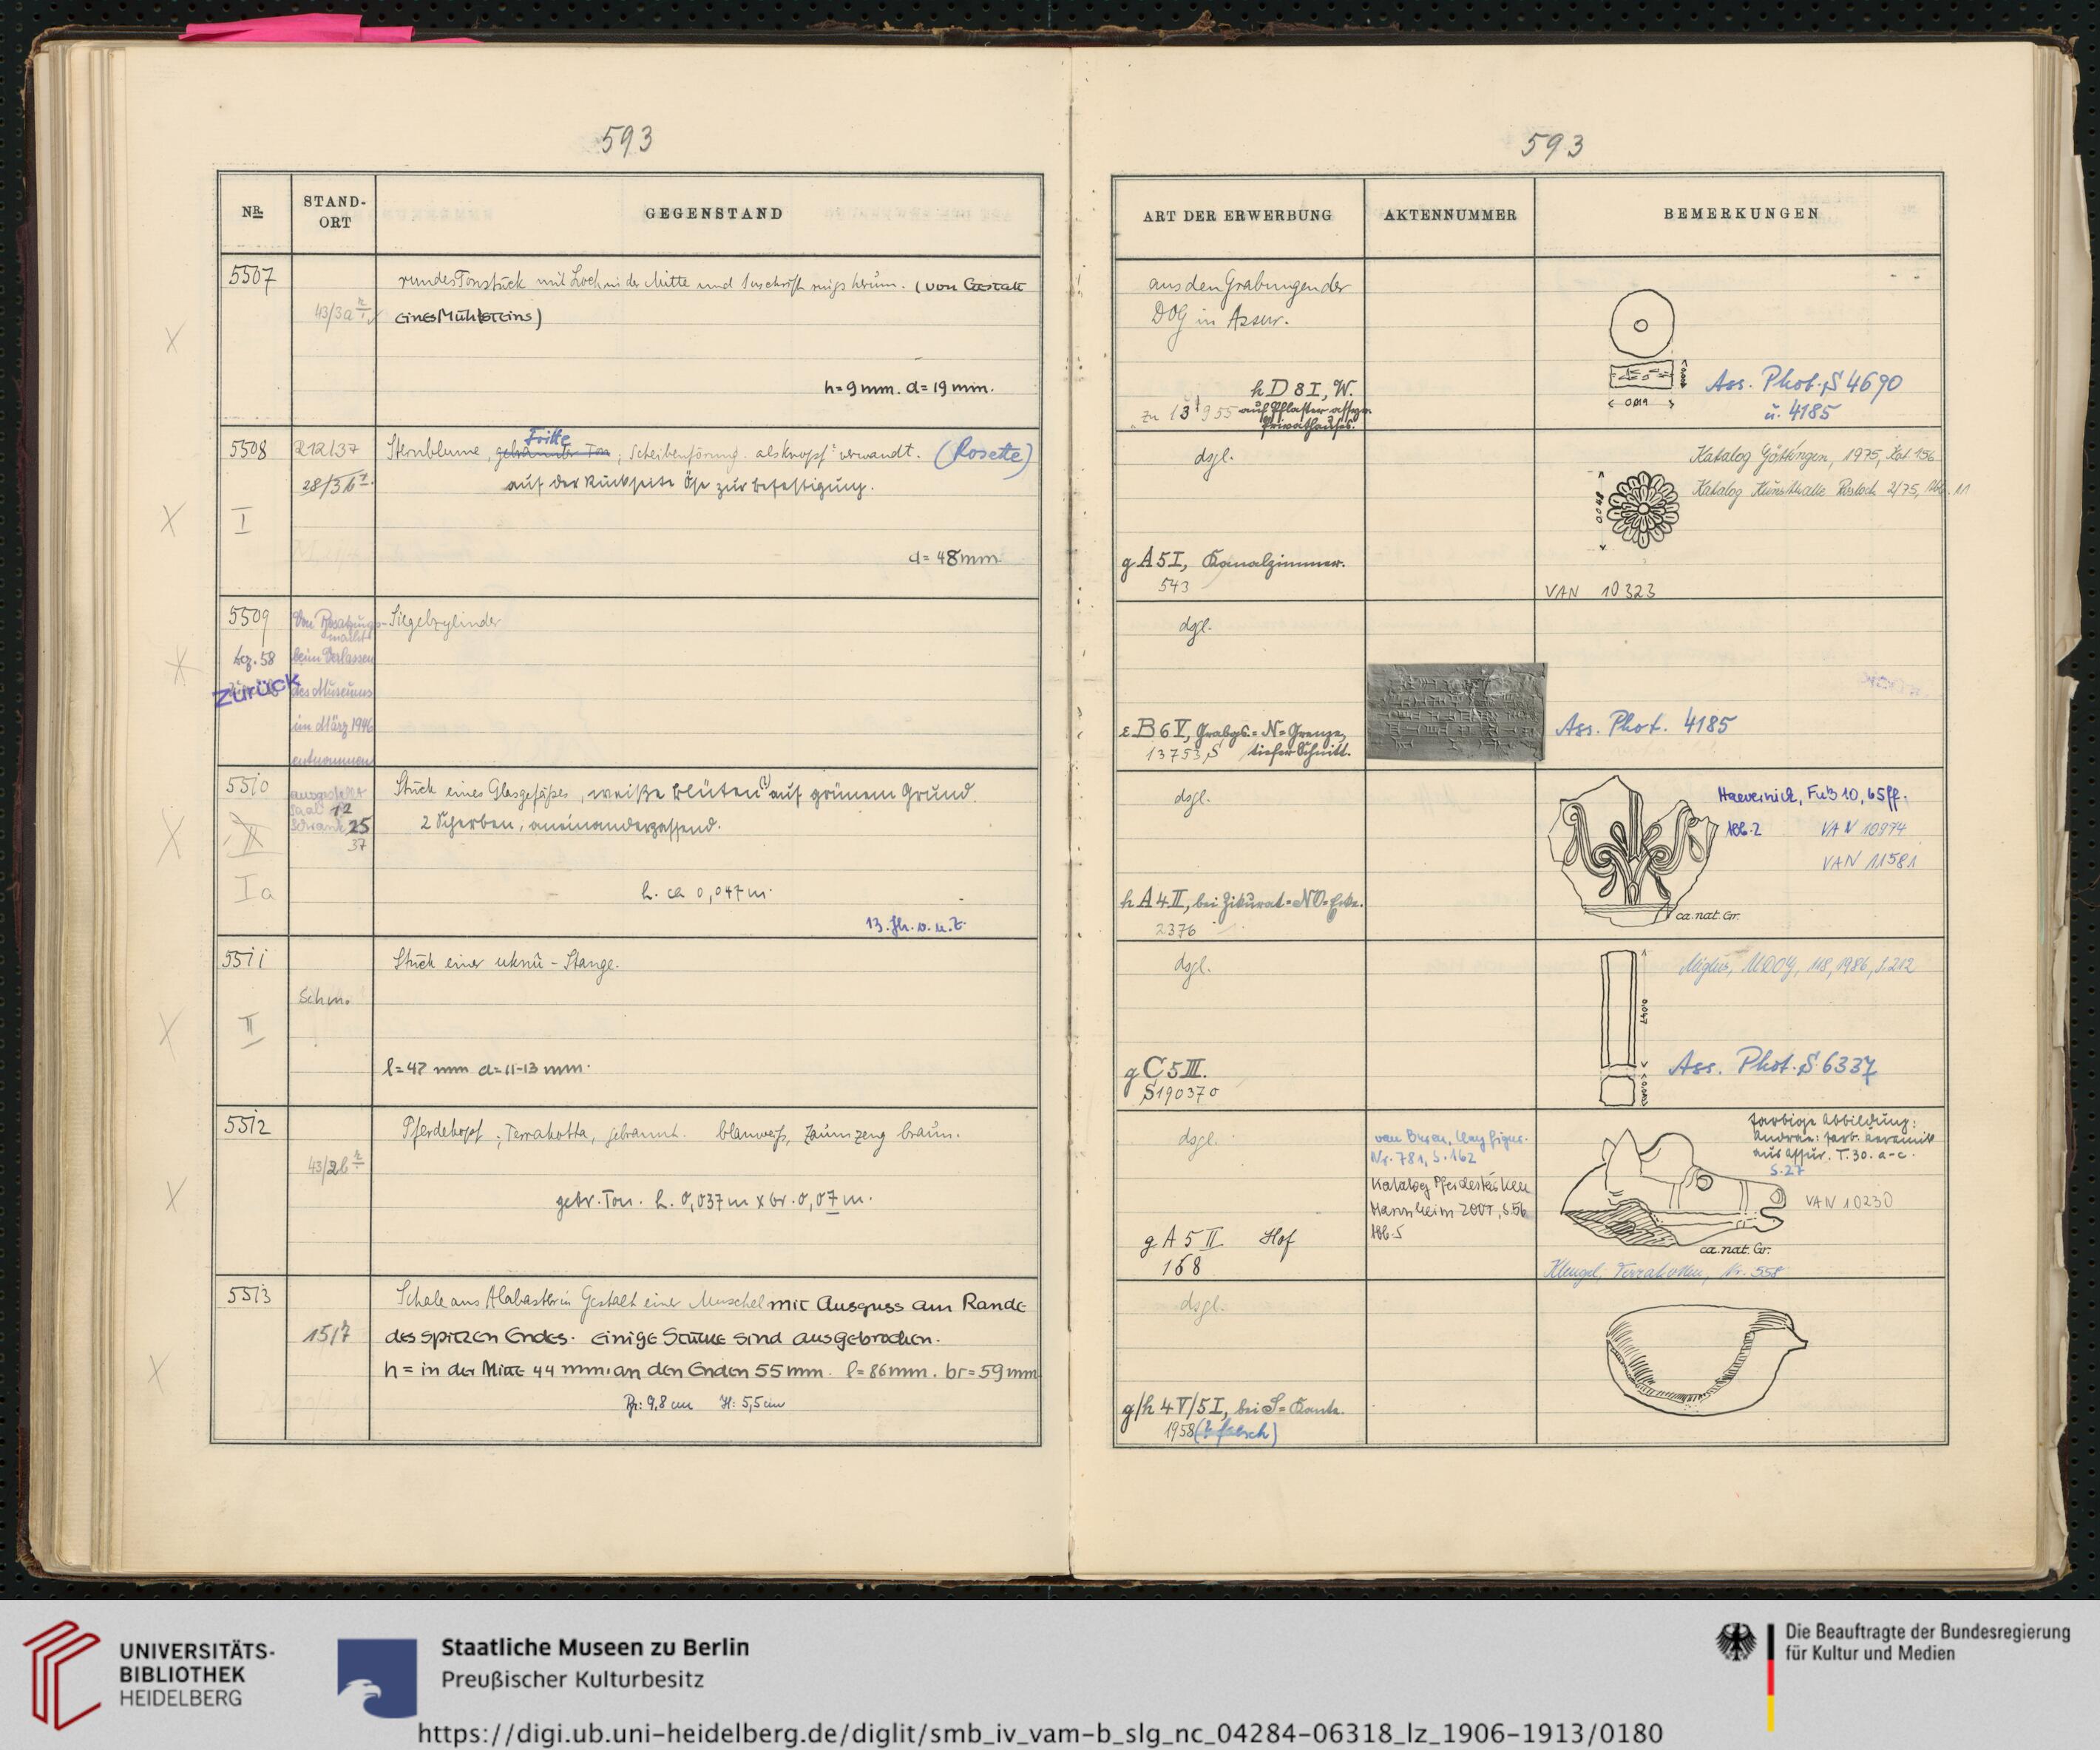 593
NR. STAND-ORT GEGENSTAND
5507 rundes Tonstück mit Loch in der Mitte und Inschrift rings herum. (von Gestalt
43/3a eines Mühlsteins)
h = 9 mm. d = 19 mm.
5508 212137 Sternblume, gebrannter Ton, Scheibenförmig. als Knopf verwandt. (Rosette)
Fritte
28/3b auf der Rückseite Öse zur Befestigung.
I
d = 48 mm.
5509 Von Besatzungs- Siegelzylinder
macht
58 beim Verlassen
Zurück des Museums
im März 1946
entnommen
5510 ausgestellt Stück eines Glasgefäßes, weiße Blüten (?) auf grünem Grund.
Saal 12
Schrank 25 2 Scherben, aneinanderpassend.
37
II
Ia h. ca 0,047 m.
13. Jh. v. u. Z.
5511 Stück einer uknû - Stange.
Schm.
II
l = 47 mm d = 11-13 mm.
5512 Pferdekopf, Terrakotta, gebrannt. blauweiß, Zaumzeug braun.
43/2b
gebr. Ton. h. 0,037 m x br. 0,07 m.
5513 Schale aus Alabaster in Gestalt einer Muschel mit Ausguss am Rande
15/7 des spitzen Endes. Einige Stücke sind ausgebrochen.
h = in der Mitte 44 mm. an den Enden 55 mm. l = 86 mm. br = 59 mm
Br: 9,8 cm H: 5,5 cm
593
ART DER ERWERBUNG AKTENNUMMER BEMERKUNGEN
aus den Grabungen der
DOG in Assur.
h D 8 I, W.
zu 13955 auf Pflaster assyr.
Privathauses.
0,019
Ass. Phot. S 4690
u. 4185
dsgl.
Katalog Göttingen, 1975, Kat 156
Katalog Kunsthalle Rostock 2/75, Abb. 11
0,048
g A 5 I, Kanalzimmer.
543
VAN 10323
dgl.
e B 6 V, Grabgs.=N=Grenze,
13753 S tiefer Schnitt.
Ass. Phot. 4185
dsgl.
Haevernick, FuB 10, 65ff.
Abb. 2 VAN 10974
VAN 11581
h A 4 II, bei Zikurat=NO=Ecke.
2376
ca. nat. Gr.
dsgl.
MDOG, 118, 1986, S. 212
0,047
g C 5 III.
S19037o
Ass. Phot. S 6337
dsgl.
van Buren, Clay figur.
Nr. 781, S. 162
Katalog Pferdestärken
Mannheim 2007, S. 56
Abb. 5
farbige Abbildung:
Andrae: farb. Keramik
aus Assur. T. 30. a-c.
S. 27
VAN 10230
g A 5 II Hof
168
ca. nat. Gr.
Klengel, Terrakotten, Nr. 558
dsgl.
g/h 4 V/5 I, bei S=Kante.
1958 (? falsch)
UNIVERSITÄTS-
BIBLIOTHEK
HEIDELBERG
Staatliche Museen zu Berlin
Preußischer Kulturbesitz
Die Beauftragte der Bundesregierung
für Kultur und Medien
https://digi.ub.uni-heidelberg.de/diglit/smb_iv_vam-b_slg_nc_04284-06318_lz_1906-1913/0180